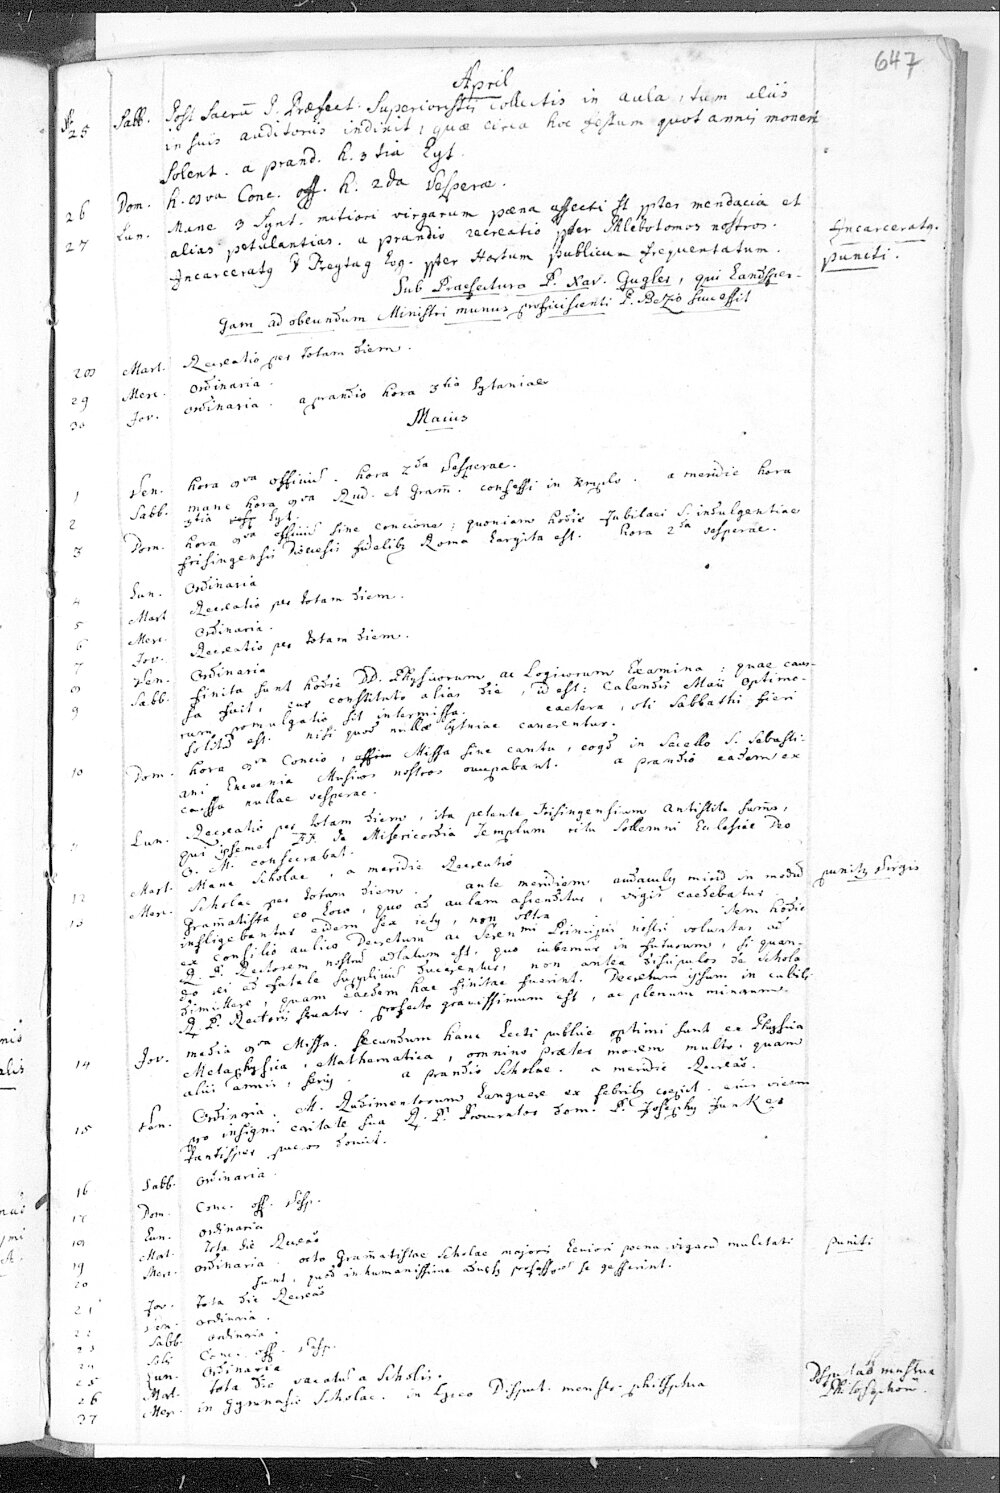 647
April
25 Sabb. Post Sacrū P. Præfect. Superioristis collectis in aula, tum aliis
in suis auditoriis indixit, quæ circa hoc festum quot annis moneri
solent. a prand. h. 3tia Lyt.
26 Dom. h. 8va Conc. off. h. 2da Vesperæ.
27 Lun. Mane 3 Synt. mitiori virgarum pæna affecti st ppter mendacia et
alias petulantias. a prandio recreatio ppter Phlebotomos nostros.
Incarceratg D Freytag Log. ppter Hortum publicum frequentatum.
Incarceratg.
puniti.
Sub Præfectura P. Xav. Gugler, qui Landsper-
gam ad obeundum Ministri munus proficiscenti P. Bezo successit
28 Mart. Recreatio per totam diem.
29 Merc. Ordinaria.
30 Jov. Ordinaria. a prandio hora 3tia Lytaniae
Maius
1 Ven. hora 8va officiū. hora 2da Vesperae.
2 Sabb. mane hora 8va Rud. et Gram̄. confessi in templo. a meridie hora
3tia Lyt.
3 Dom. hora 8va officiū sine concione; quoniam hodie Jubilaei S. indulgentiae
Frisingensis Dioecesis fidelibg Roma largita est. hora 2da vesperae.
4 Lun. Ordinaria
5 Mart Recreatio per totam diem.
6 Merc. Ordinaria.
7 Jov. Recreatio per totam diem.
8 Ven. Ordinaria
9 Sabb. finita sunt hodie DD. Physicorum ac Logicorum Examina: quae caus-
sa fuit, cur constituto alias die, id est: Calendis Maii optimo-
rum promulgatio sit intermissa. caetera, uti Sabbathi fieri
solitū est. nisi quod nullae lytniae canerentur.
10 Dom. hora 8va Concio, Missa sine cantu, eoqd in Sacello S. Sebasti-
ani Encaenia Musicos nostros occupabant. a prandio eadem ex
caussa nullae vesperae.
Lun. Recreatio per totam diem, ita petente Frisingensium Antistite summo,
qui ipsemet FF. de Misericordia Templum ritu Sollemni Ecclesiae Deo
O. M. consecrabat.
12 Mart. Mane Scholae, a meridie Recreatio
13 Merc. Scholae per totum diem. ante meridiem audaculg in modū
punitg virgis
Grammatista eo loco, quo ad aulam ascenditur, virgis caedebatur.
infligebantur eidem sex ictg, non ultra. Item hodie
ex Consilio aulico Decretum ac Serenmi Principis nostri voluntas ad
R. P. Rectorem nostrū adlatum est, quo iubemur in futurum, si quan-
do rei ad fatale supplicium ducerentur, non antea discipulos de Schola
dimittere, quam eaedem hae finitae fuerint. Decretum ipsum in cubili
R. P. Rectoris servatur. profecto gravissimum est, ac plenum minarum.
14 Jov. media 8va Missa. secundum hanc Lecti publice optimi sunt ex Physica
Metaphysica, Mathematica, omnino praeter morem multo, quam
aliis annis, serig. a prandio Scholae. a meridie Recreaō.
15 Ven. Ordinaria. M. Rudimentorum Languere ex febribg coepit. eius vicem
pro insigni caritate sua R. P. Procurator dom. P. Josephg Junker
tantisper pueros domuit.
16 Sabb. Ordinaria.
17 Dom. Conc. off. Vesp.
18 Lun. Ordinaria
19 Mart. Tota die Recreaō
20 Merc. Ordinaria. octo Grammatistae Scholae majoris leviori poena virgarū mulctati
puniti
sunt, quod inhumanissime adversg professorē se gesserint.
21 Jov. Tota die Recreaō
22 Ven. ordinaria.
23 Sabb. ordinaria.
24 Soli Conc. off. Vesp.
25 Lun. Ordinaria
26 Mart. Tota die vacatū a Scholis.
27 Mer. in Gymnasio Scholae. in Lyceo Disput. menstr. philosophica
Disputaō menstrua
Philosophorū.